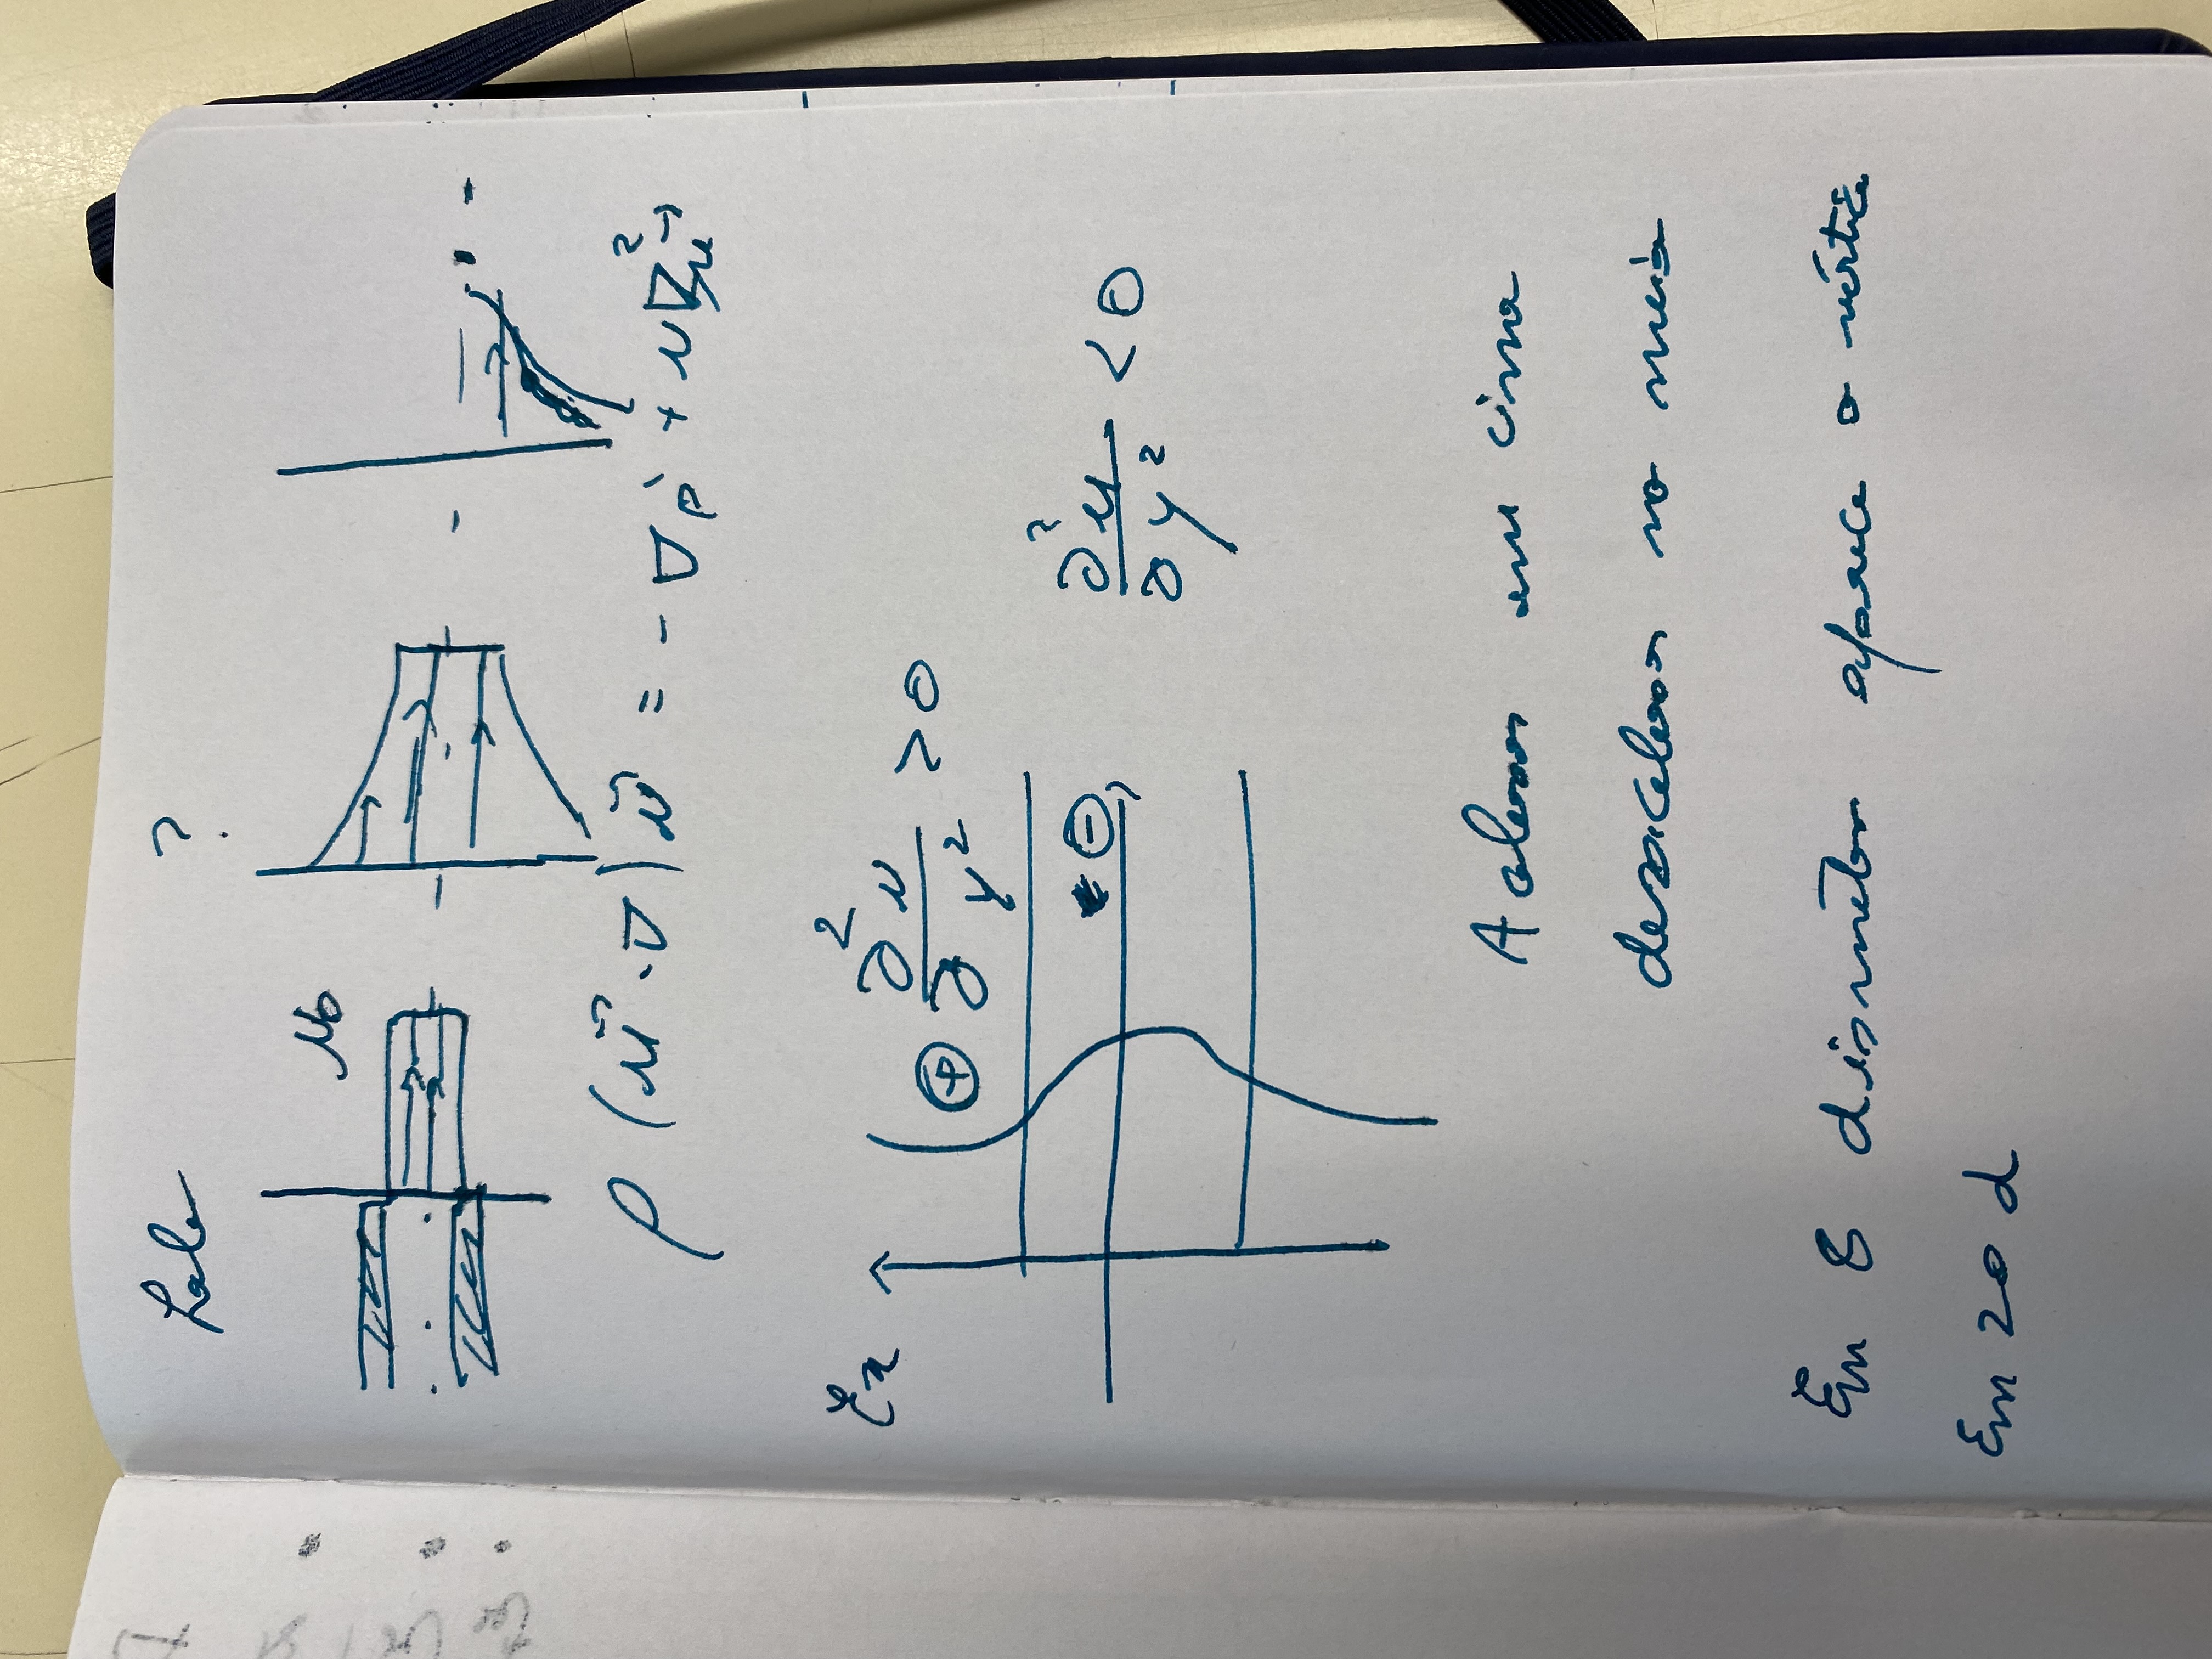 Lab ?
u₀
ρ (u⃗ · ∇) u⃗ = - ∇p + μ∇²u⃗
Ex
⊕ ∂²u/∂y² > 0
⊖, ∂²u/∂y² < 0
Acelerar em cima
desacelerar no meio
Em 8 diametros aparece o vórtice
Em 20 d